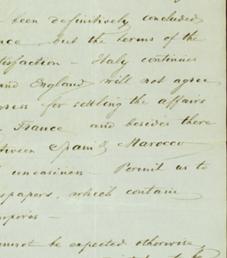 been definitively concluded
but the terms of the
Italy continues
England will not agree
for settling the affairs
France and besides there
Spain & Marocco
uneasiness — Permit us to
which contain
be expected otherwise